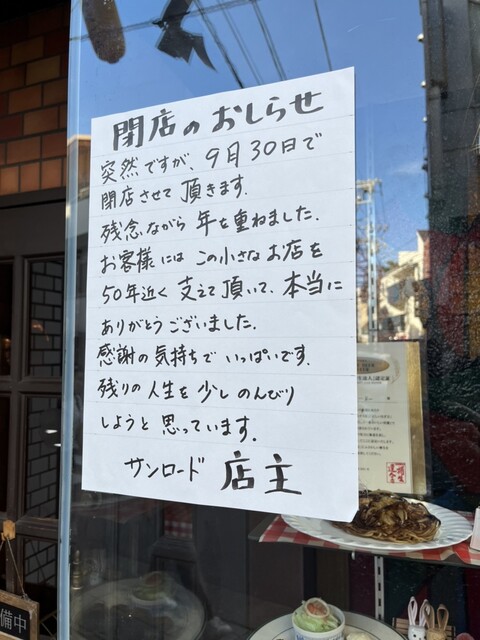 閉店のおしらせ
突然ですが、9月30日で
閉店させて頂きます.
残念ながら 年を重ねました.
お客様には この小さなお店を
50年近く 支えて頂いて、本当に
ありがとうございました.
感謝の気持ちで いっぱいです.
残りの人生を少しのんびり
しようと思っています.
サンロード 店主
備中